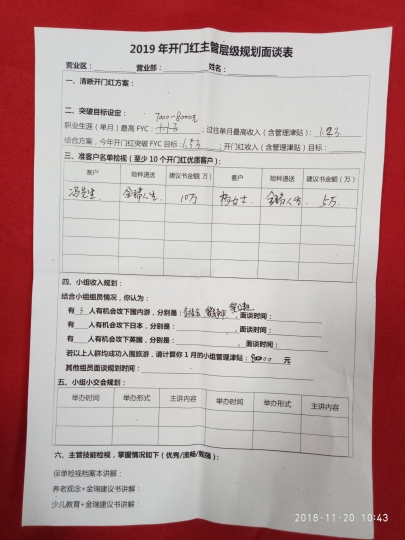 2019 年开门红主管层级规划面谈表
营业区： 营业部： 姓名：
一、清晰开门红方案：
二、突破目标设定：
7000-8000元
职业生涯（单月）最高 FYC： 1.1万 ；过往单月最高收入（含管理津贴） 1.2万
结合方案，今年开门红突破 FYC 目标： 1.5万 ；开门红收入（含管理津贴）目标：
三、准客户名单检视（至少 10 个开门红优质客户）：
客户 险种递送 建议书金额(万) 客户 险种递送 建议书金额（万）
冯先生 金瑞人生 10万 女士 金瑞人生 5万
四、小组收入规划：
结合小组组员情况，你认为：
有 3 人有机会攻下国内游，分别是： ，面谈时间：
有 人有机会攻下日本，分别是： ，面谈时间：
有 人有机会攻下英国，分别是： ，面谈时间：
若以上人群均成功入围旅游，请计算你 1 月的小组管理津贴： 8000 元
其他组员面谈规划时间：
五、小组小交会规划：
举办时间 举办形式 主讲内容 举办时间 举办形式 主讲内容
六、主管技能检视，掌握情况如下（优秀/流畅/勉强）：
保单检视档案本讲解：
养老观念+金瑞建议书讲解：
少儿教育+金瑞建议书讲解：
2018-11-20 10:43